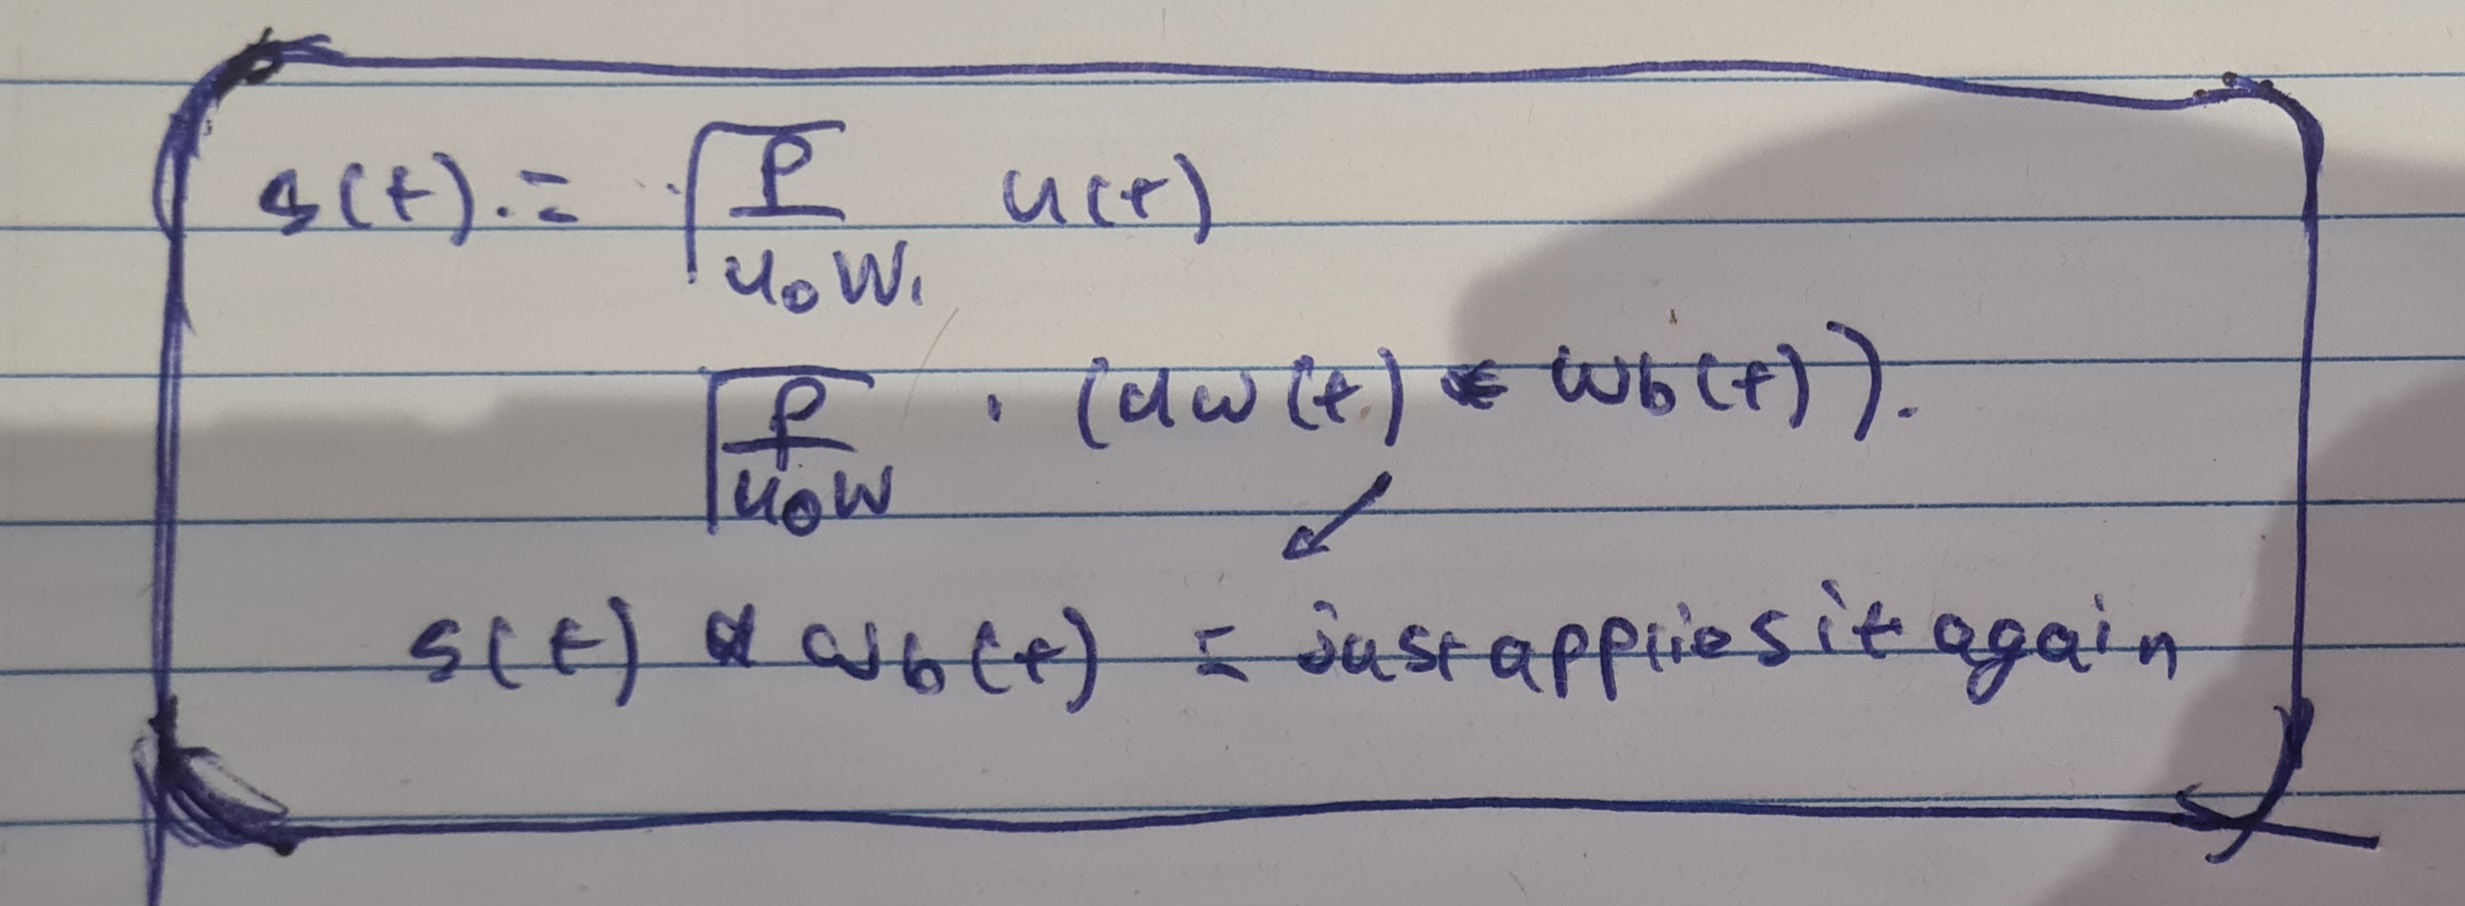 s(t) = √(P/u₀W) u(t)
√(P/u₀W) · (dw(t) * wb(t)).
s(t) * wb(t) = just applies it again